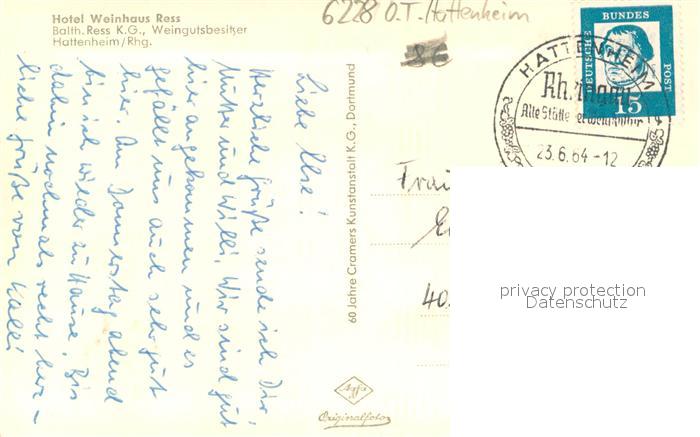 Hotel Weinhaus Ress
Balth. Ress K.G., Weingutsbesitzer
Hattenheim/Rhg.
6228 O.T. Hattenheim
DEUTSCHE BUNDES POST
15
HATTENHEIM
Rheingau
Alte Stätte der Weinkultur
23.6.64-12
Liebe Ilse!
Herzliche Grüße sende ich Dir,
Mutter und Willi. Wir sind gut
hier angekommen und es
gefällt uns auch sehr gut
hier. Am Donnerstag abend
bin ich wieder zu Hause. Bis
dahin nochmals recht herz-
liche Grüße von Kalli
60 Jahre Cramers Kunstanstalt K.G., Dortmund
Frau
40
Agfa
Originalfoto
privacy protection
Datenschutz